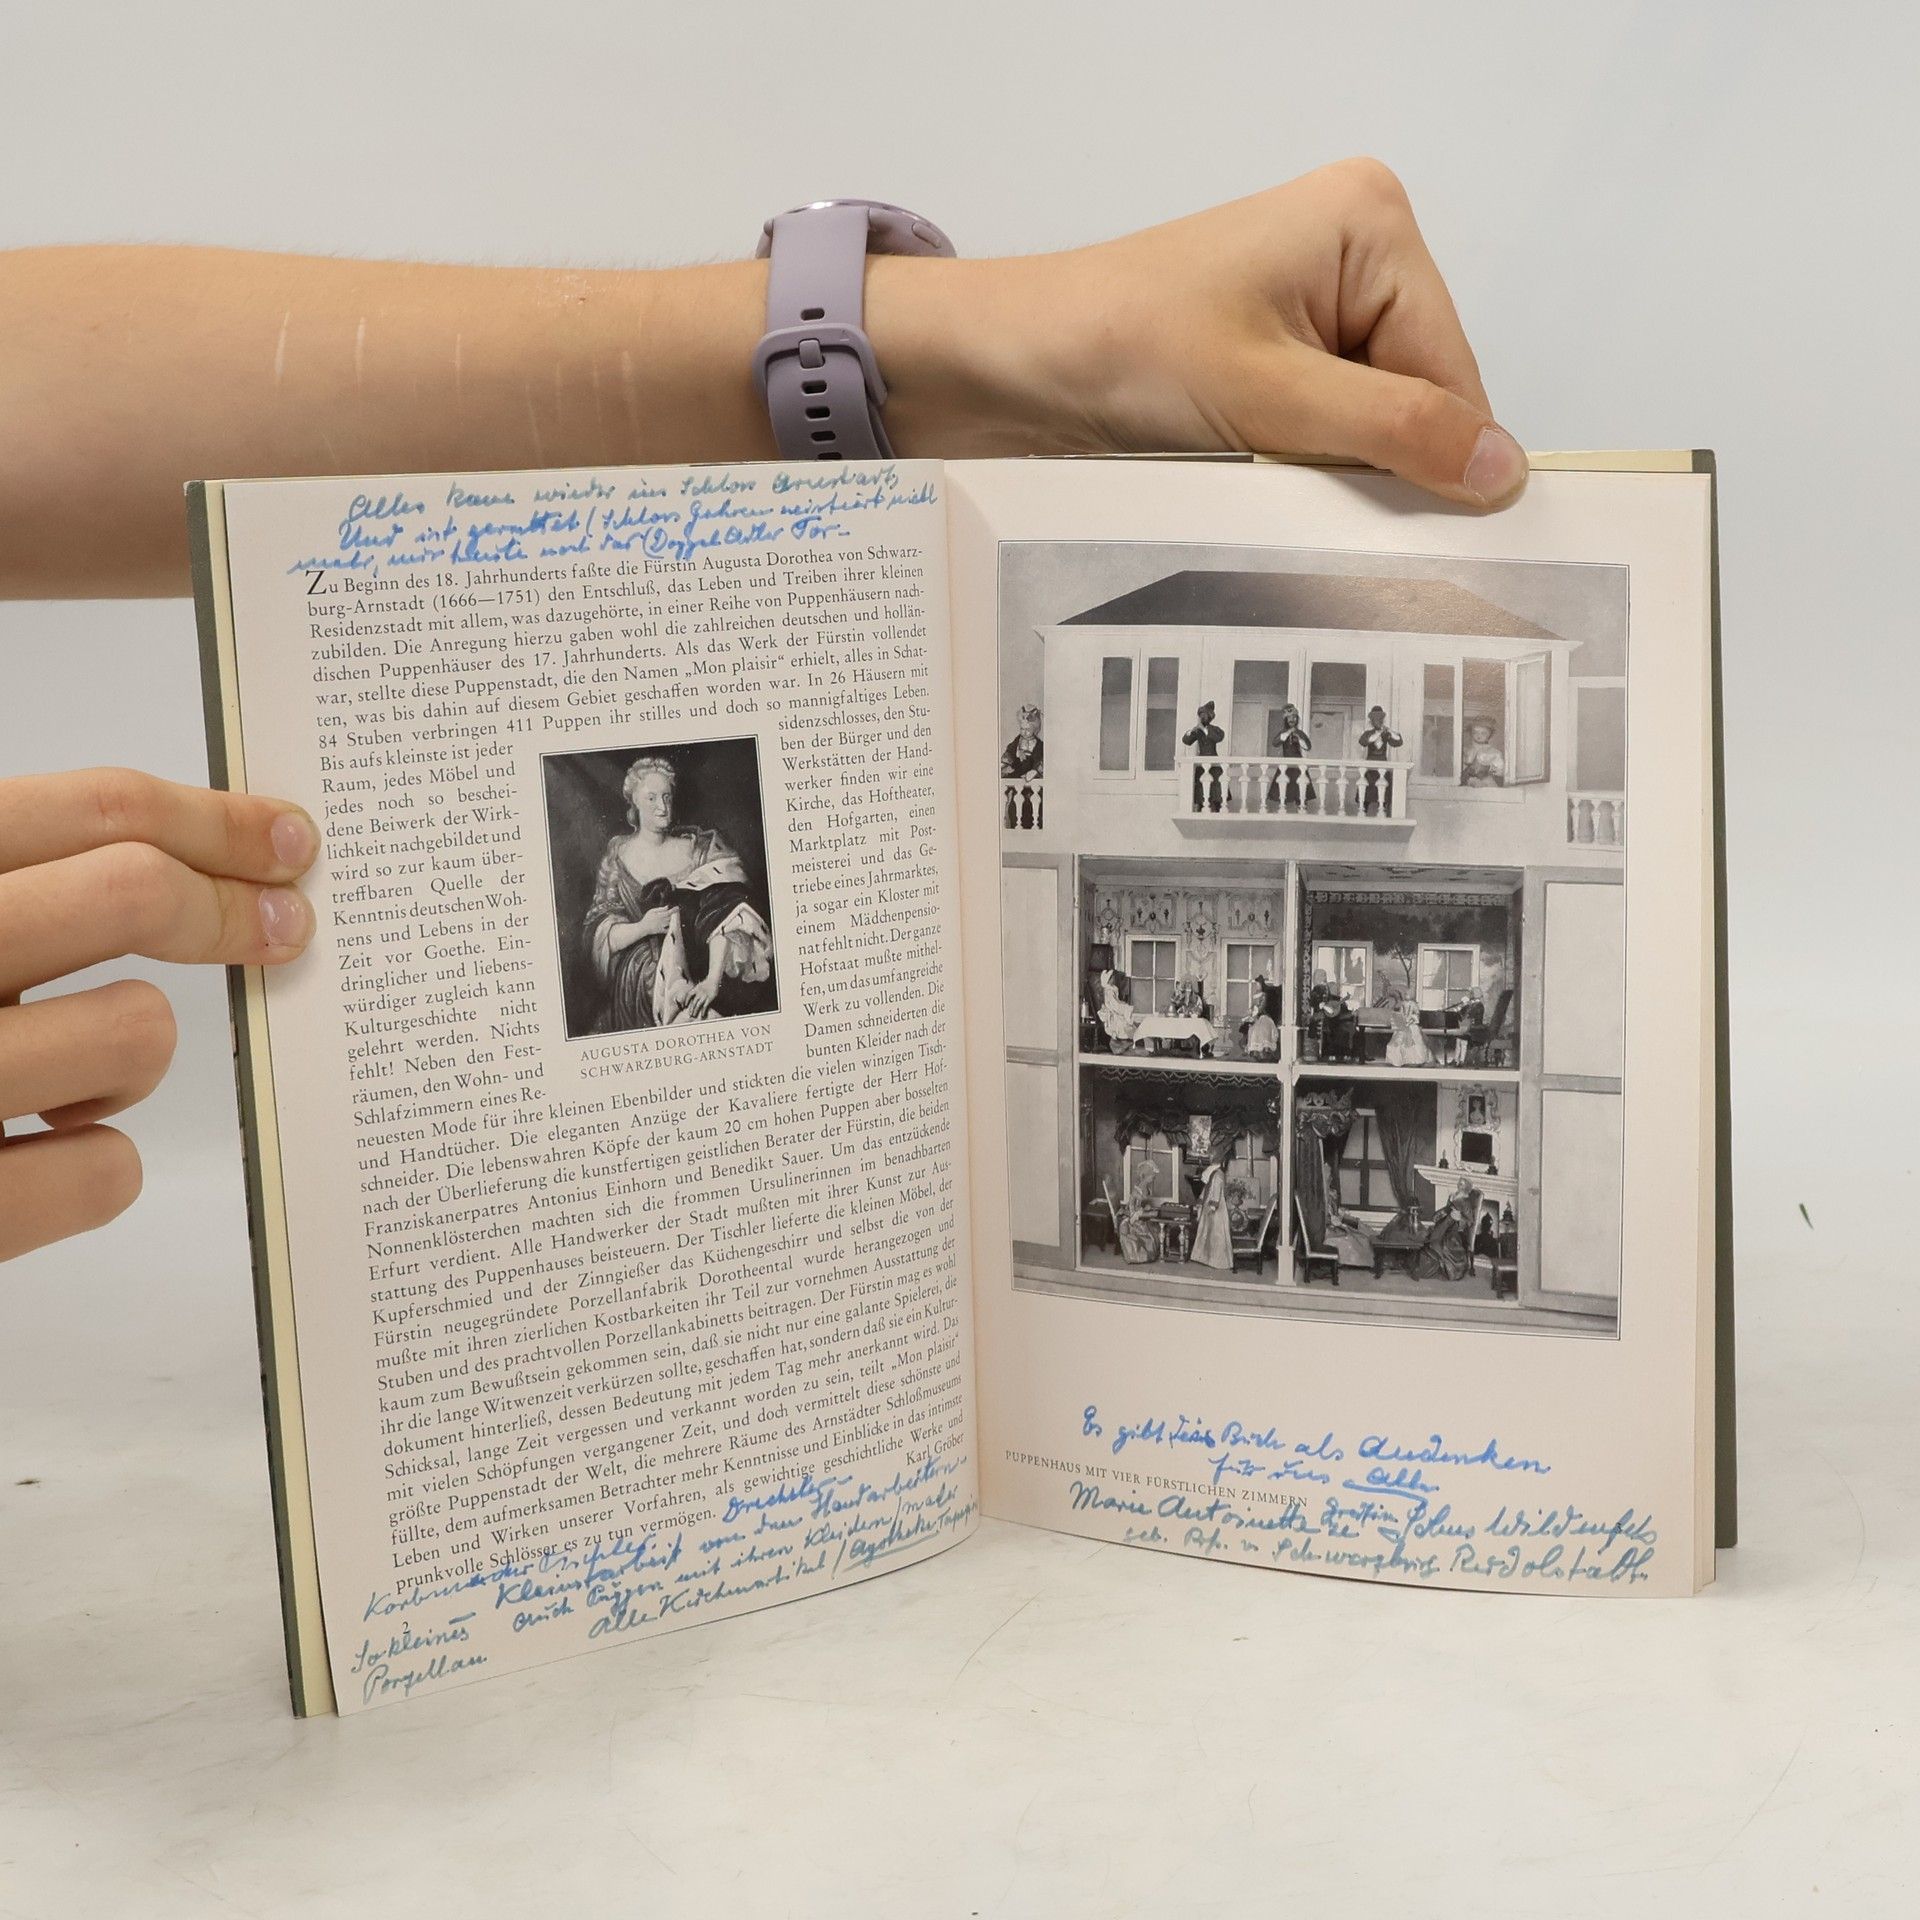 Alles kam wieder ins Schloss Arnstadt,
Und ist gerettet (Schloss Gehren existiert nicht
mehr, nur heute noch das (Doppel Adler Tor-
Zu Beginn des 18. Jahrhunderts faßte die Fürstin Augusta Dorothea von Schwarz-
burg-Arnstadt (1666—1751) den Entschluß, das Leben und Treiben ihrer kleinen
Residenzstadt mit allem, was dazugehörte, in einer Reihe von Puppenhäusern nach-
zubilden. Die Anregung hierzu gaben wohl die zahlreichen deutschen und hollän-
dischen Puppenhäuser des 17. Jahrhunderts. Als das Werk der Fürstin vollendet
war, stellte diese Puppenstadt, die den Namen „Mon plaisir“ erhielt, alles in Schat-
ten, was bis dahin auf diesem Gebiet geschaffen worden war. In 26 Häusern mit
84 Stuben verbringen 411 Puppen ihr stilles und doch so mannigfaltiges Leben.
Bis aufs kleinste ist jeder
Raum, jedes Möbel und
jedes noch so beschei-
dene Beiwerk der Wirk-
lichkeit nachgebildet und
wird so zur kaum über-
treffbaren Quelle der
Kenntnis deutschen Woh-
nens und Lebens in der
Zeit vor Goethe. Ein-
dringlicher und liebens-
würdiger zugleich kann
Kulturgeschichte nicht
gelehrt werden. Nichts
fehlt! Neben den Fest-
räumen, den Wohn- und
Schlafzimmern eines Re-
sidenzschlosses, den Stu-
ben der Bürger und den
Werkstätten der Hand-
werker finden wir eine
Kirche, das Hoftheater,
den Hofgarten, einen
Marktplatz mit Post-
meisterei und das Ge-
triebe eines Jahrmarktes,
ja sogar ein Kloster mit
einem Mädchenpensio-
nat fehlt nicht. Der ganze
Hofstaat mußte mithel-
fen, um das umfangreiche
Werk zu vollenden. Die
Damen schneiderten die
bunten Kleider nach der
AUGUSTA DOROTHEA VON
SCHWARZBURG-ARNSTADT
neuesten Mode für ihre kleinen Ebenbilder und stickten die vielen winzigen Tisch-
und Handtücher. Die eleganten Anzüge der Kavaliere fertigte der Herr Hof-
schneider. Die lebenswahren Köpfe der kaum 20 cm hohen Puppen aber bosselten
nach der Überlieferung die kunstfertigen geistlichen Berater der Fürstin, die beiden
Franziskanerpatres Antonius Einhorn und Benedikt Sauer. Um das entzückende
Nonnenklösterchen machten sich die frommen Ursulinerinnen im benachbarten
Erfurt verdient. Alle Handwerker der Stadt mußten mit ihrer Kunst zur Aus-
stattung des Puppenhauses beisteuern. Der Tischler lieferte die kleinen Möbel, der
Kupferschmied und der Zinngießer das Küchengeschirr und selbst die von der
Fürstin neugegründete Porzellanfabrik Dorotheental wurde herangezogen und
mußte mit ihren zierlichen Kostbarkeiten ihr Teil zur vornehmen Ausstattung der
Stuben und des prachtvollen Porzellankabinetts beitragen. Der Fürstin mag es wohl
kaum zum Bewußtsein gekommen sein, daß sie nicht nur eine galante Spielerei, die
ihr die lange Witwenzeit verkürzen sollte, geschaffen hat, sondern daß sie ein Kultur-
dokument hinterließ, dessen Bedeutung mit jedem Tag mehr anerkannt wird. Das
Schicksal, lange Zeit vergessen und verkannt worden zu sein, teilt „Mon plaisir“
mit vielen Schöpfungen vergangener Zeit, und doch vermittelt diese schönste und
größte Puppenstadt der Welt, die mehrere Räume des Arnstädter Schloßmuseums
füllte, dem aufmerksamen Betrachter mehr Kenntnisse und Einblicke in das intimste
Leben und Wirken unserer Vorfahren, als gewichtige geschichtliche Werke und
prunkvolle Schlösser es zu tun vermögen.
Karl Gröber
Drechsler-
Kleinstarbeit von den Handarbeitern-
auch Puppen mit ihren Kleidern/
Alle Kirchenartikel/Apotheke
2
So kleines
Porzellan
Es gibt dies Buch als Andenken
für uns Alle
PUPPENHAUS MIT VIER FÜRSTLICHEN ZIMMERN
Marie Antoinette Gräfin zu Solms Wildenfels
geb. Prß. v Schwarzburg Rudolstadt.